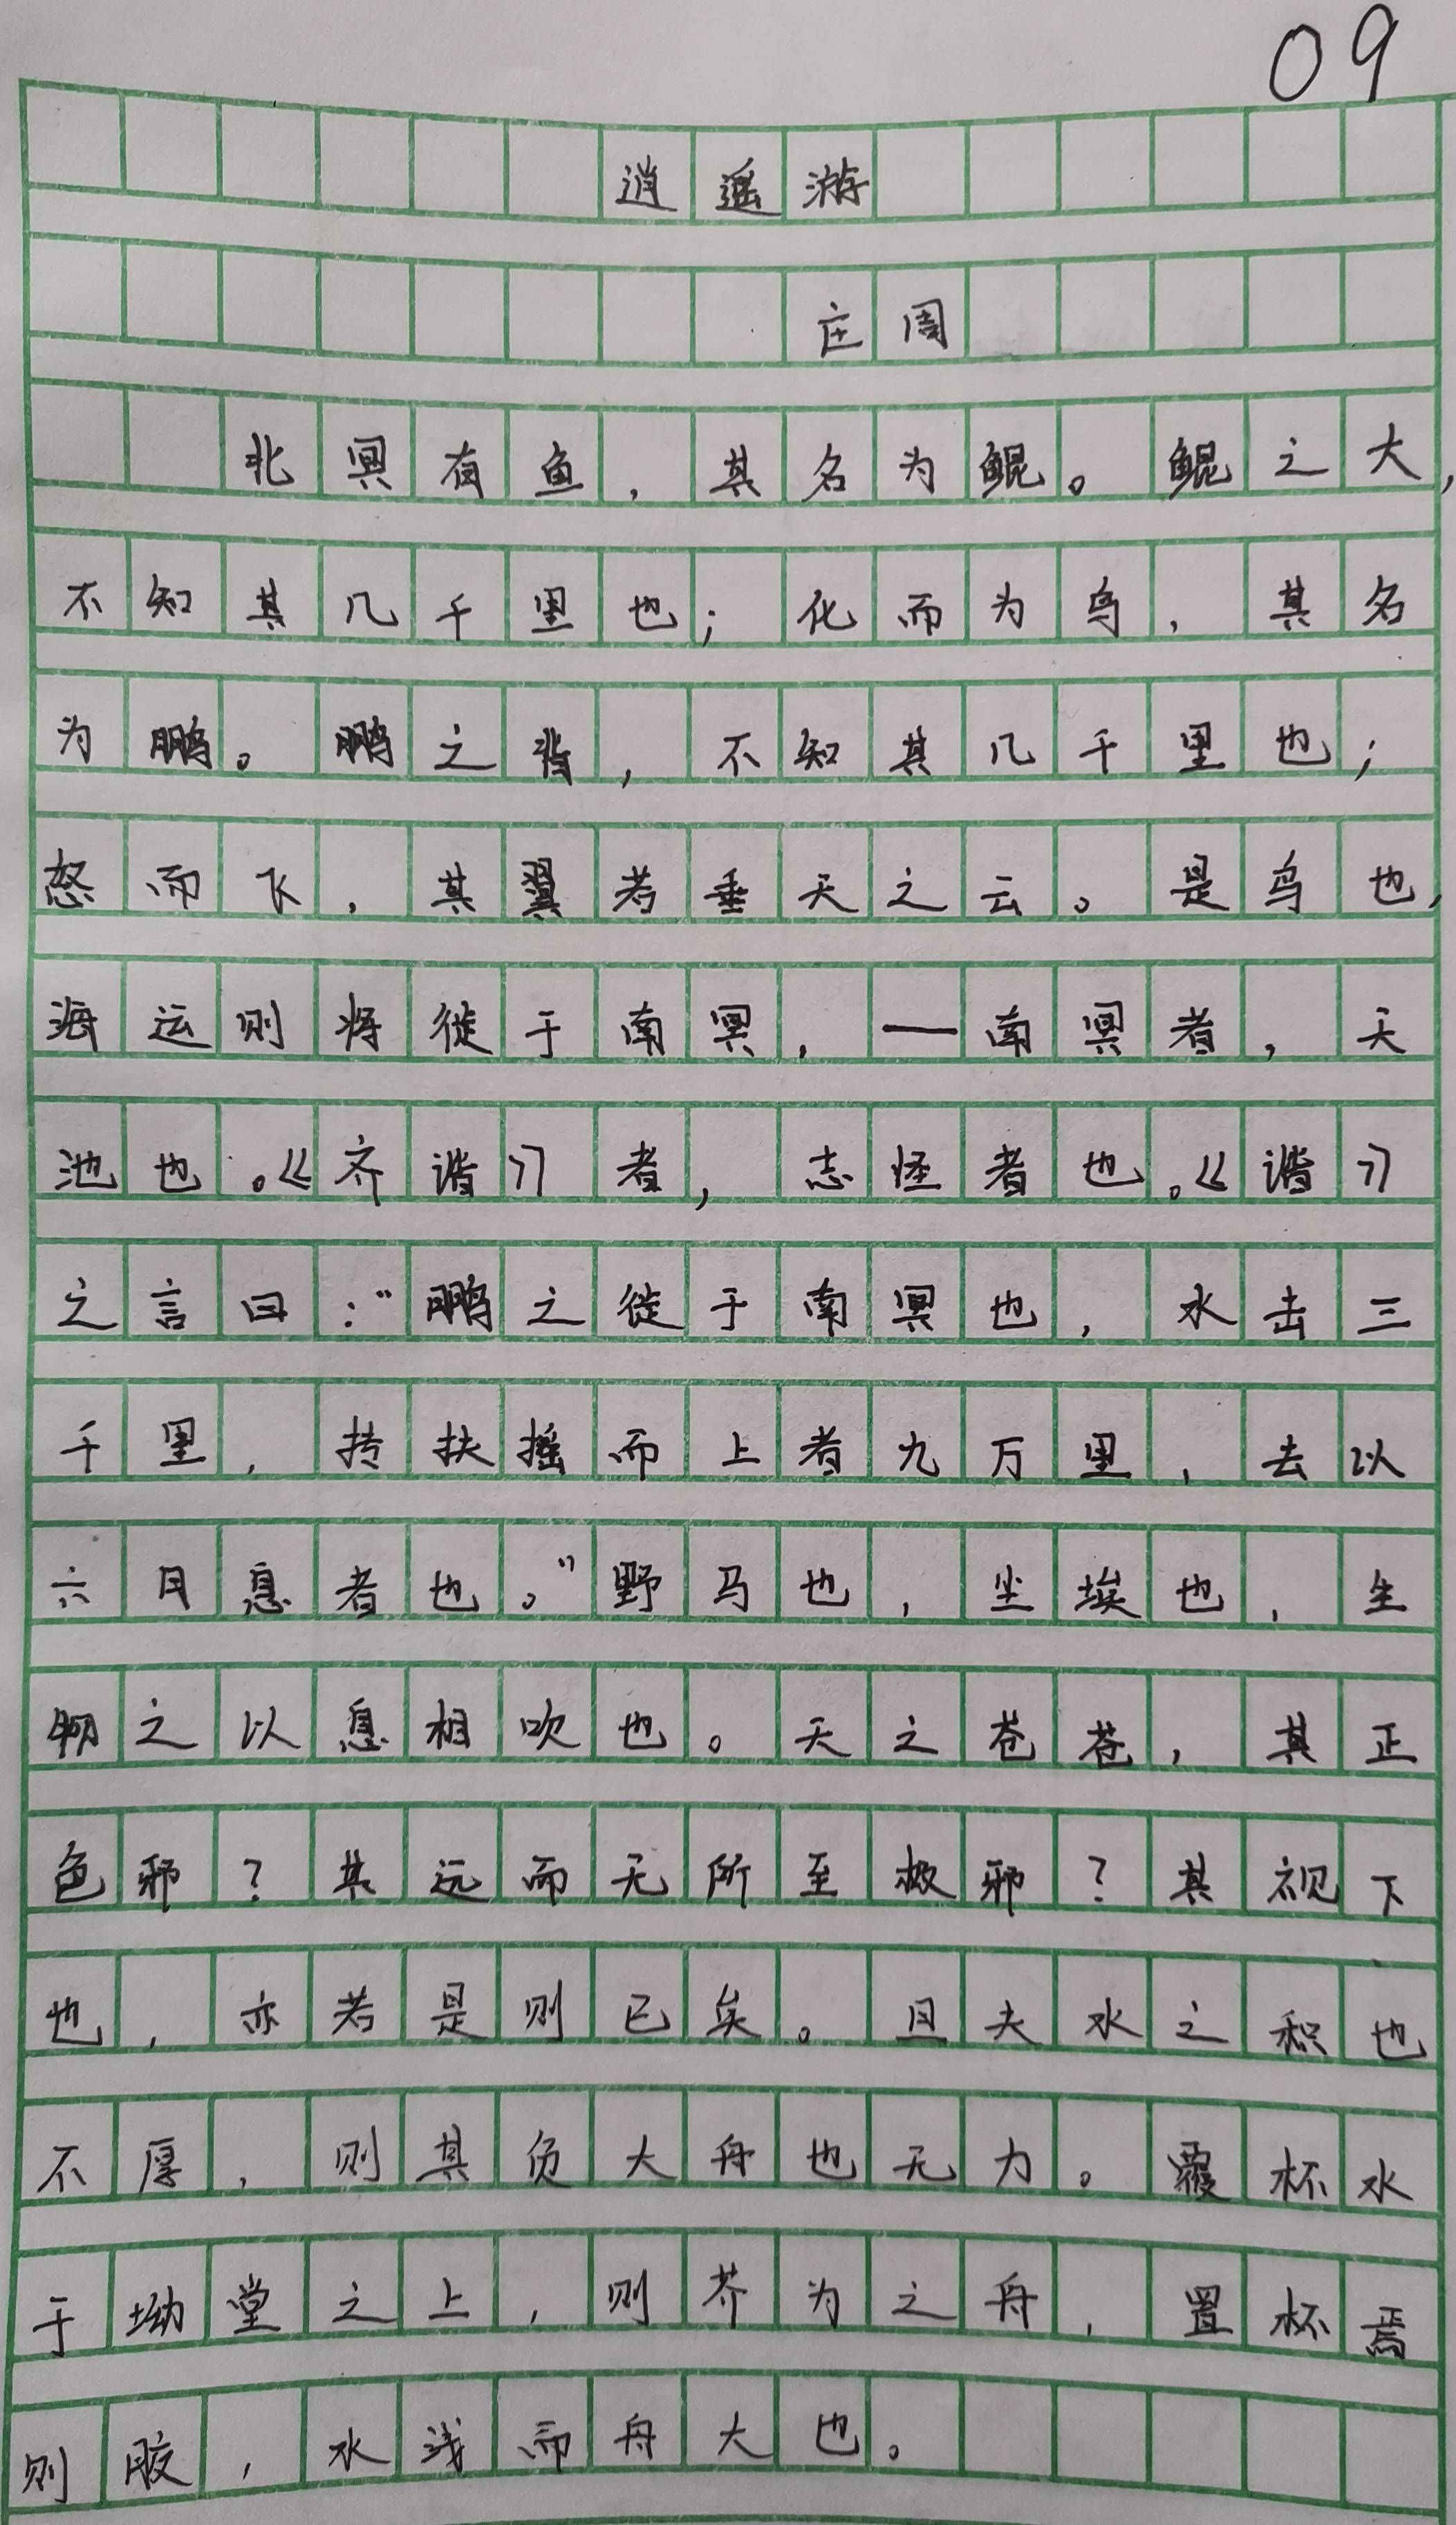 09
逍遥游
庄周
北冥有鱼，其名为鲲。鲲之大，
不知其几千里也；化而为鸟，其名
为鹏。鹏之背，不知其几千里也；
怒而飞，其翼若垂天之云。是鸟也，
海运则将徙于南冥，—南冥者，天
池也。《齐谐》者，志怪者也。《谐》
之言曰：“鹏之徙于南冥也，水击三
千里，抟扶摇而上者九万里，去以
六月息者也。”野马也，尘埃也，生
物之以息相吹也。天之苍苍，其正
色邪？其远而无所至极邪？其视下
也，亦若是则已矣。且夫水之积也
不厚，则其负大舟也无力。覆杯水
于坳堂之上，则芥为之舟，置杯焉
则胶，水浅而舟大也。